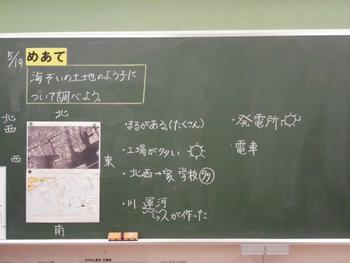 5/19
めあて
海ぞいの土地のよう子に
ついて調べよう。
北
北西
西
東
南
・まるがある。(たくさん)
・工場が多い
・北西→家、学校 多
・川 運河
人が作った
・発電所
・電車